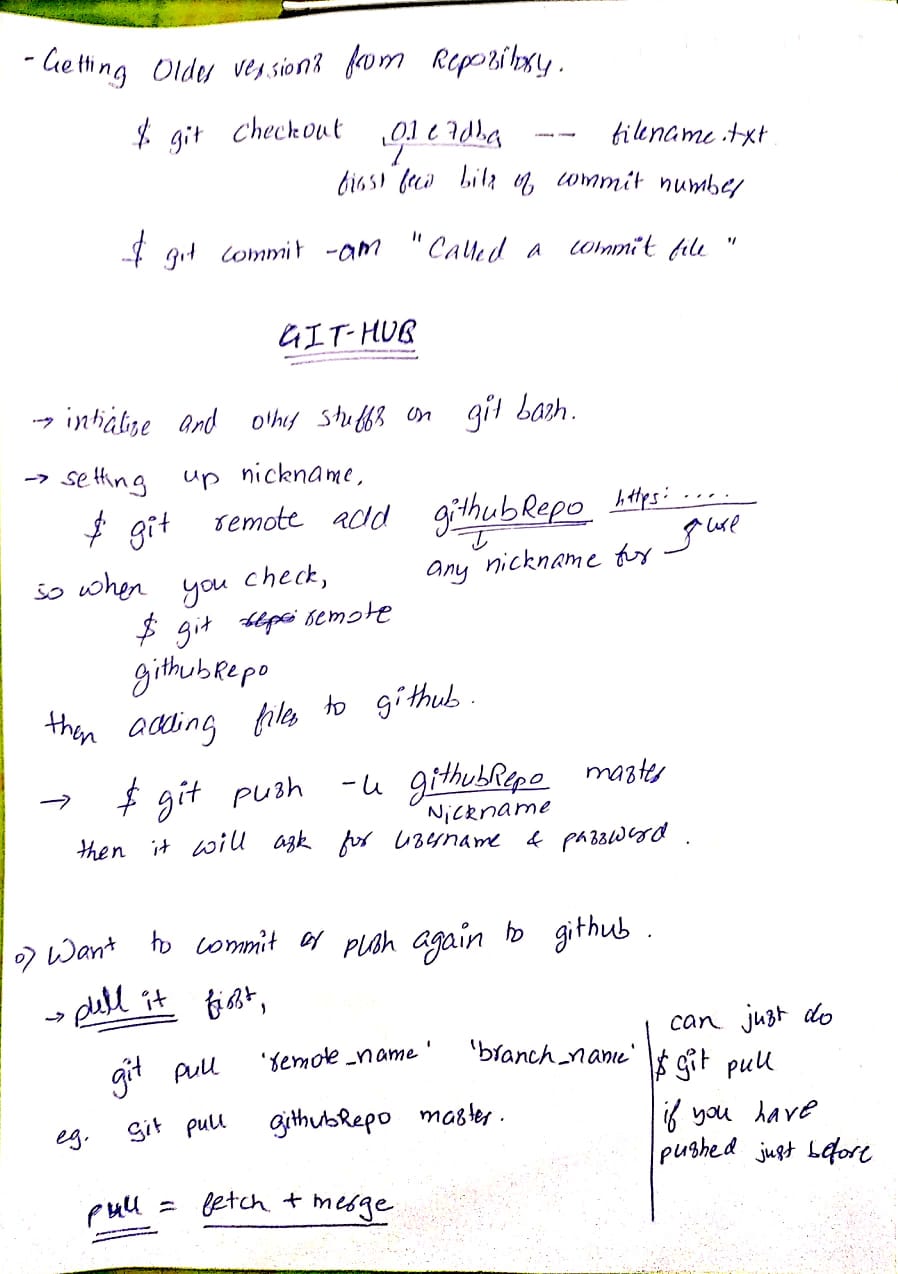 - Getting Older versions from Repository.
$ git checkout 01e7dba -- filename.txt
first few bits of commit number
$ git commit -am "Called a commit file"
GIT-HUB
→ intialize and other stuffs on git bash.
→ setting up nickname,
$ git remote add githubRepo https:....
any nickname for url
so when you check,
$ git remote
githubRepo
then adding files to github.
→ $ git push -u githubRepo master
Nickname
then it will ask for username & password.
o) Want to commit or push again to github.
→ pull it first,
git pull 'remote_name' 'branch_name'
eg. git pull githubRepo master.
pull = fetch + merge
can just do
$ git pull
if you have
pushed just before